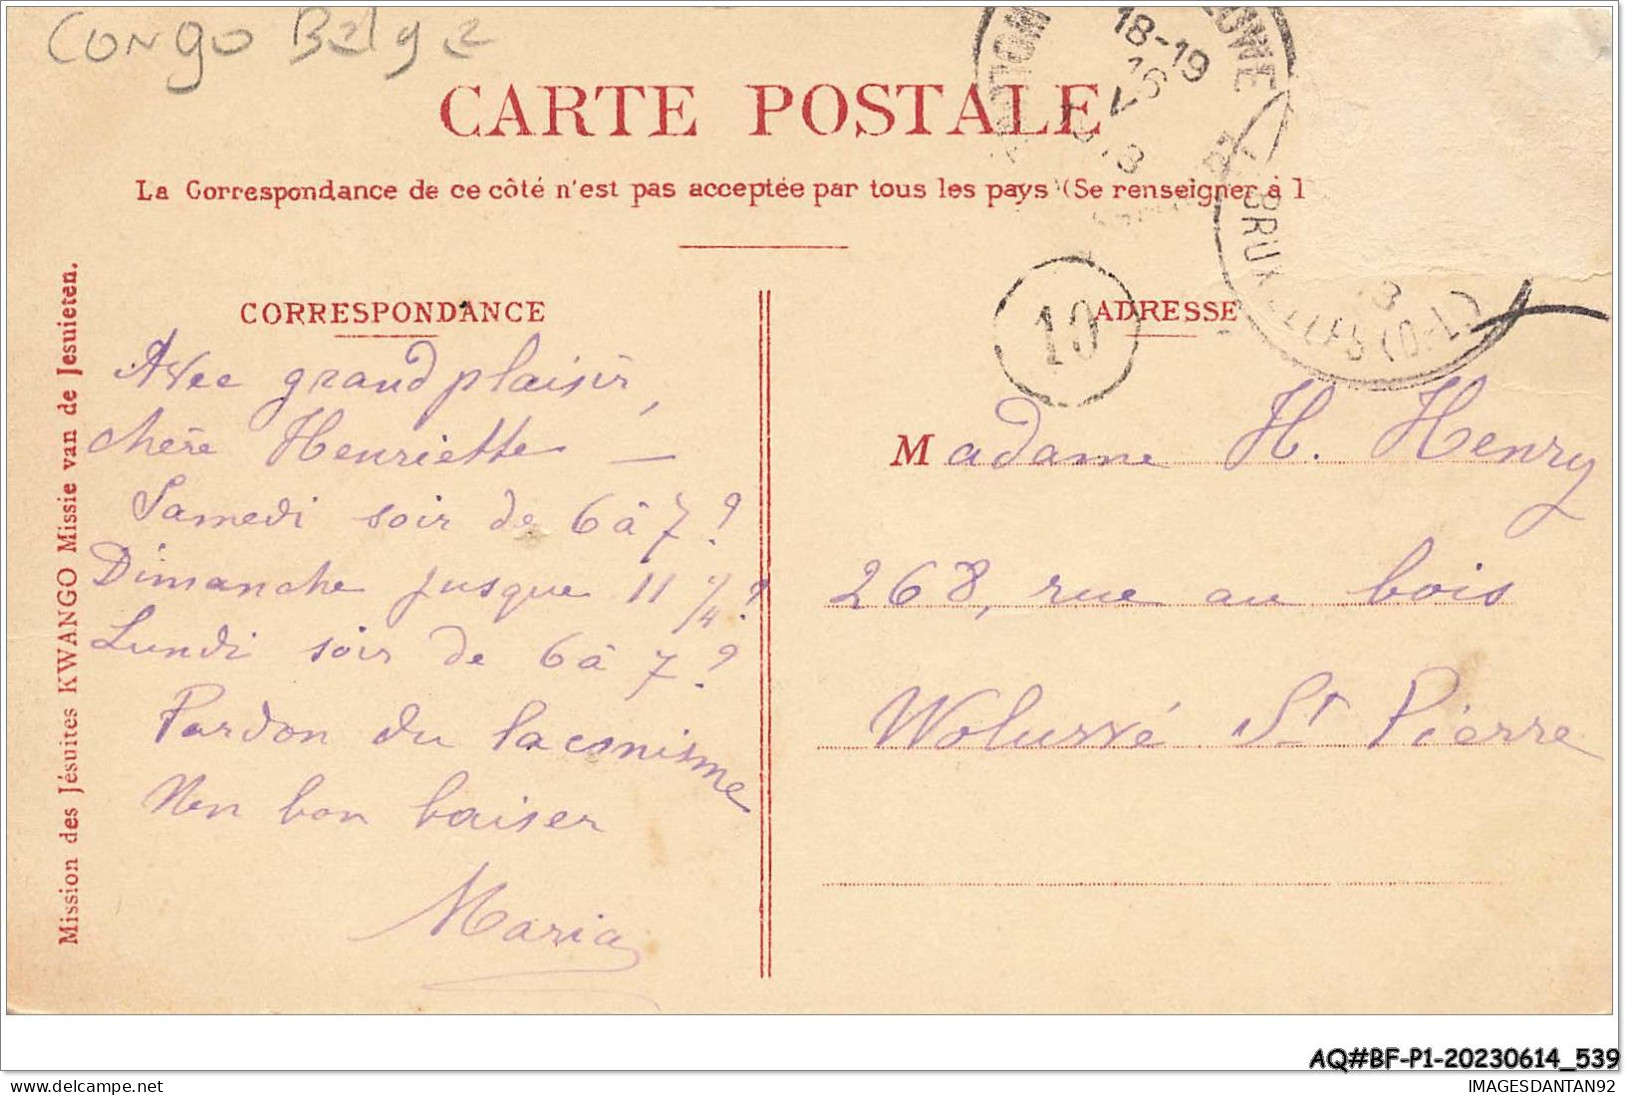 Congo Belge
CARTE POSTALE
La Correspondance de ce côté n'est pas acceptée par tous les pays (Se renseigner à l
18-19
BRUXELLES
10
Mission des Jésuites KWANGO Missie van de Jesuieten.
CORRESPONDANCE
Avec grand plaisir,
chère Henriette —
Samedi soir de 6 à 7?
Dimanche jusque 11 1/4?
Lundi soir de 6 à 7?
Pardon du laconisme
bon baiser
Maria
ADRESSE
Madame H. Henry
268, rue au bois
Woluwé St Pierre
AQ#BF-P1-20230614_539
www.delcampe.net
IMAGESDANTAN92